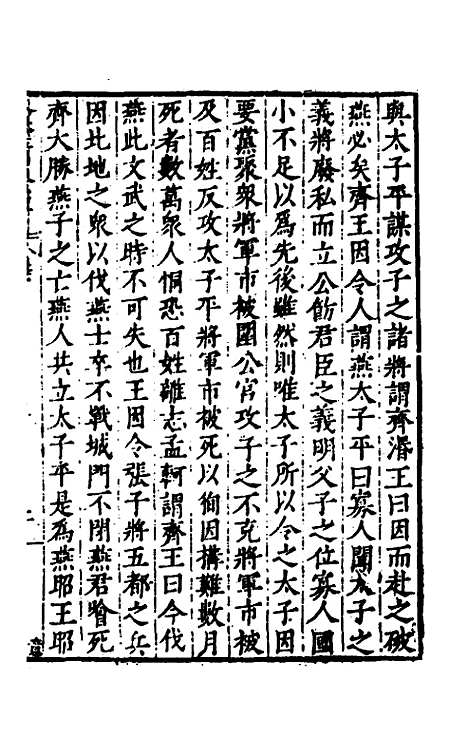 與太子平謀攻子之諸將謂齊湣王曰因而赴之破
燕必矣齊王因令人謂燕太子平曰寡人聞太子之
義將廢私而立公飭君臣之義明父子之位寡人國
小不足以爲先後雖然則唯太子所以令之太子因
要黨聚衆將軍市被圍公宮攻子之不克將軍市被
及百姓反攻太子平將軍市被死以徇因搆難數月
死者數萬衆人恫恐百姓離志孟軻謂齊王曰今伐
燕此文武之時不可失也王因令張子將五都之兵
因北地之衆以伐燕士卒不戰城門不閉燕君噲死
齊大勝燕子之亡燕人共立太子平是爲燕昭王昭